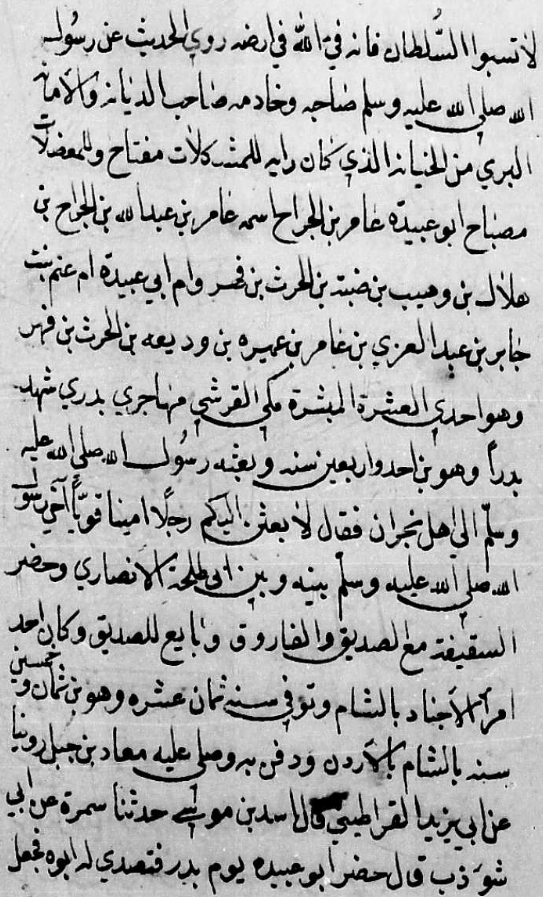 لاتسبوا السُّلطان فانه فئ الله في ارضه روي الحديث عن رسُول
الله صلي الله عليه وسلم صَاحبه وخادمه صَاحب الديانه والأمانه
البري من الخيانه الذي كان رايه للمشكلات مفتاح وللمعضلات
مصبَاح ابو عبيدة عَامر بن الجراح اسمه عَامر بن عبد الله بن الجراح بن
هلال بن وهيب بن ضبته بن الحرث بن فهر وام ابي عبيدة ام غنم بنت
جابر بن عبد العزي بن عَامر بن عميره بن وديعه بن الحرث بن فهر
وهو احدي العشرة المبشرة مكي القرشي مهاجري بدري شهد
بدراً وهو بن احد واربعين سنه وبعثه رسُول الله صلي الله عليه
وسلّم الي اهل نجران فقال لابعثن اليكم رجلًا امينا قويًّا آخي رسُول
الله صلي الله عليه وسلّم بينه وبين ابي طلحة الانصاري وحضر
السقيفة مع الصديق والفاروق وبايع للصديق وكان احد
امرأ الأجناد بالشام وتوفي سنه ثمان عشره وهو بن ثمان وخمسين
سنه بالشام بالأردن ودفن به وصلي عليه معاد بن جبل روينا
عن ابي يزيد القراطيسي قال اسد بن موسي حدثنا سمرة عن ابي
شوذب قال حضر ابو عبيده يوم بدر فتصدي له ابوه فجعل